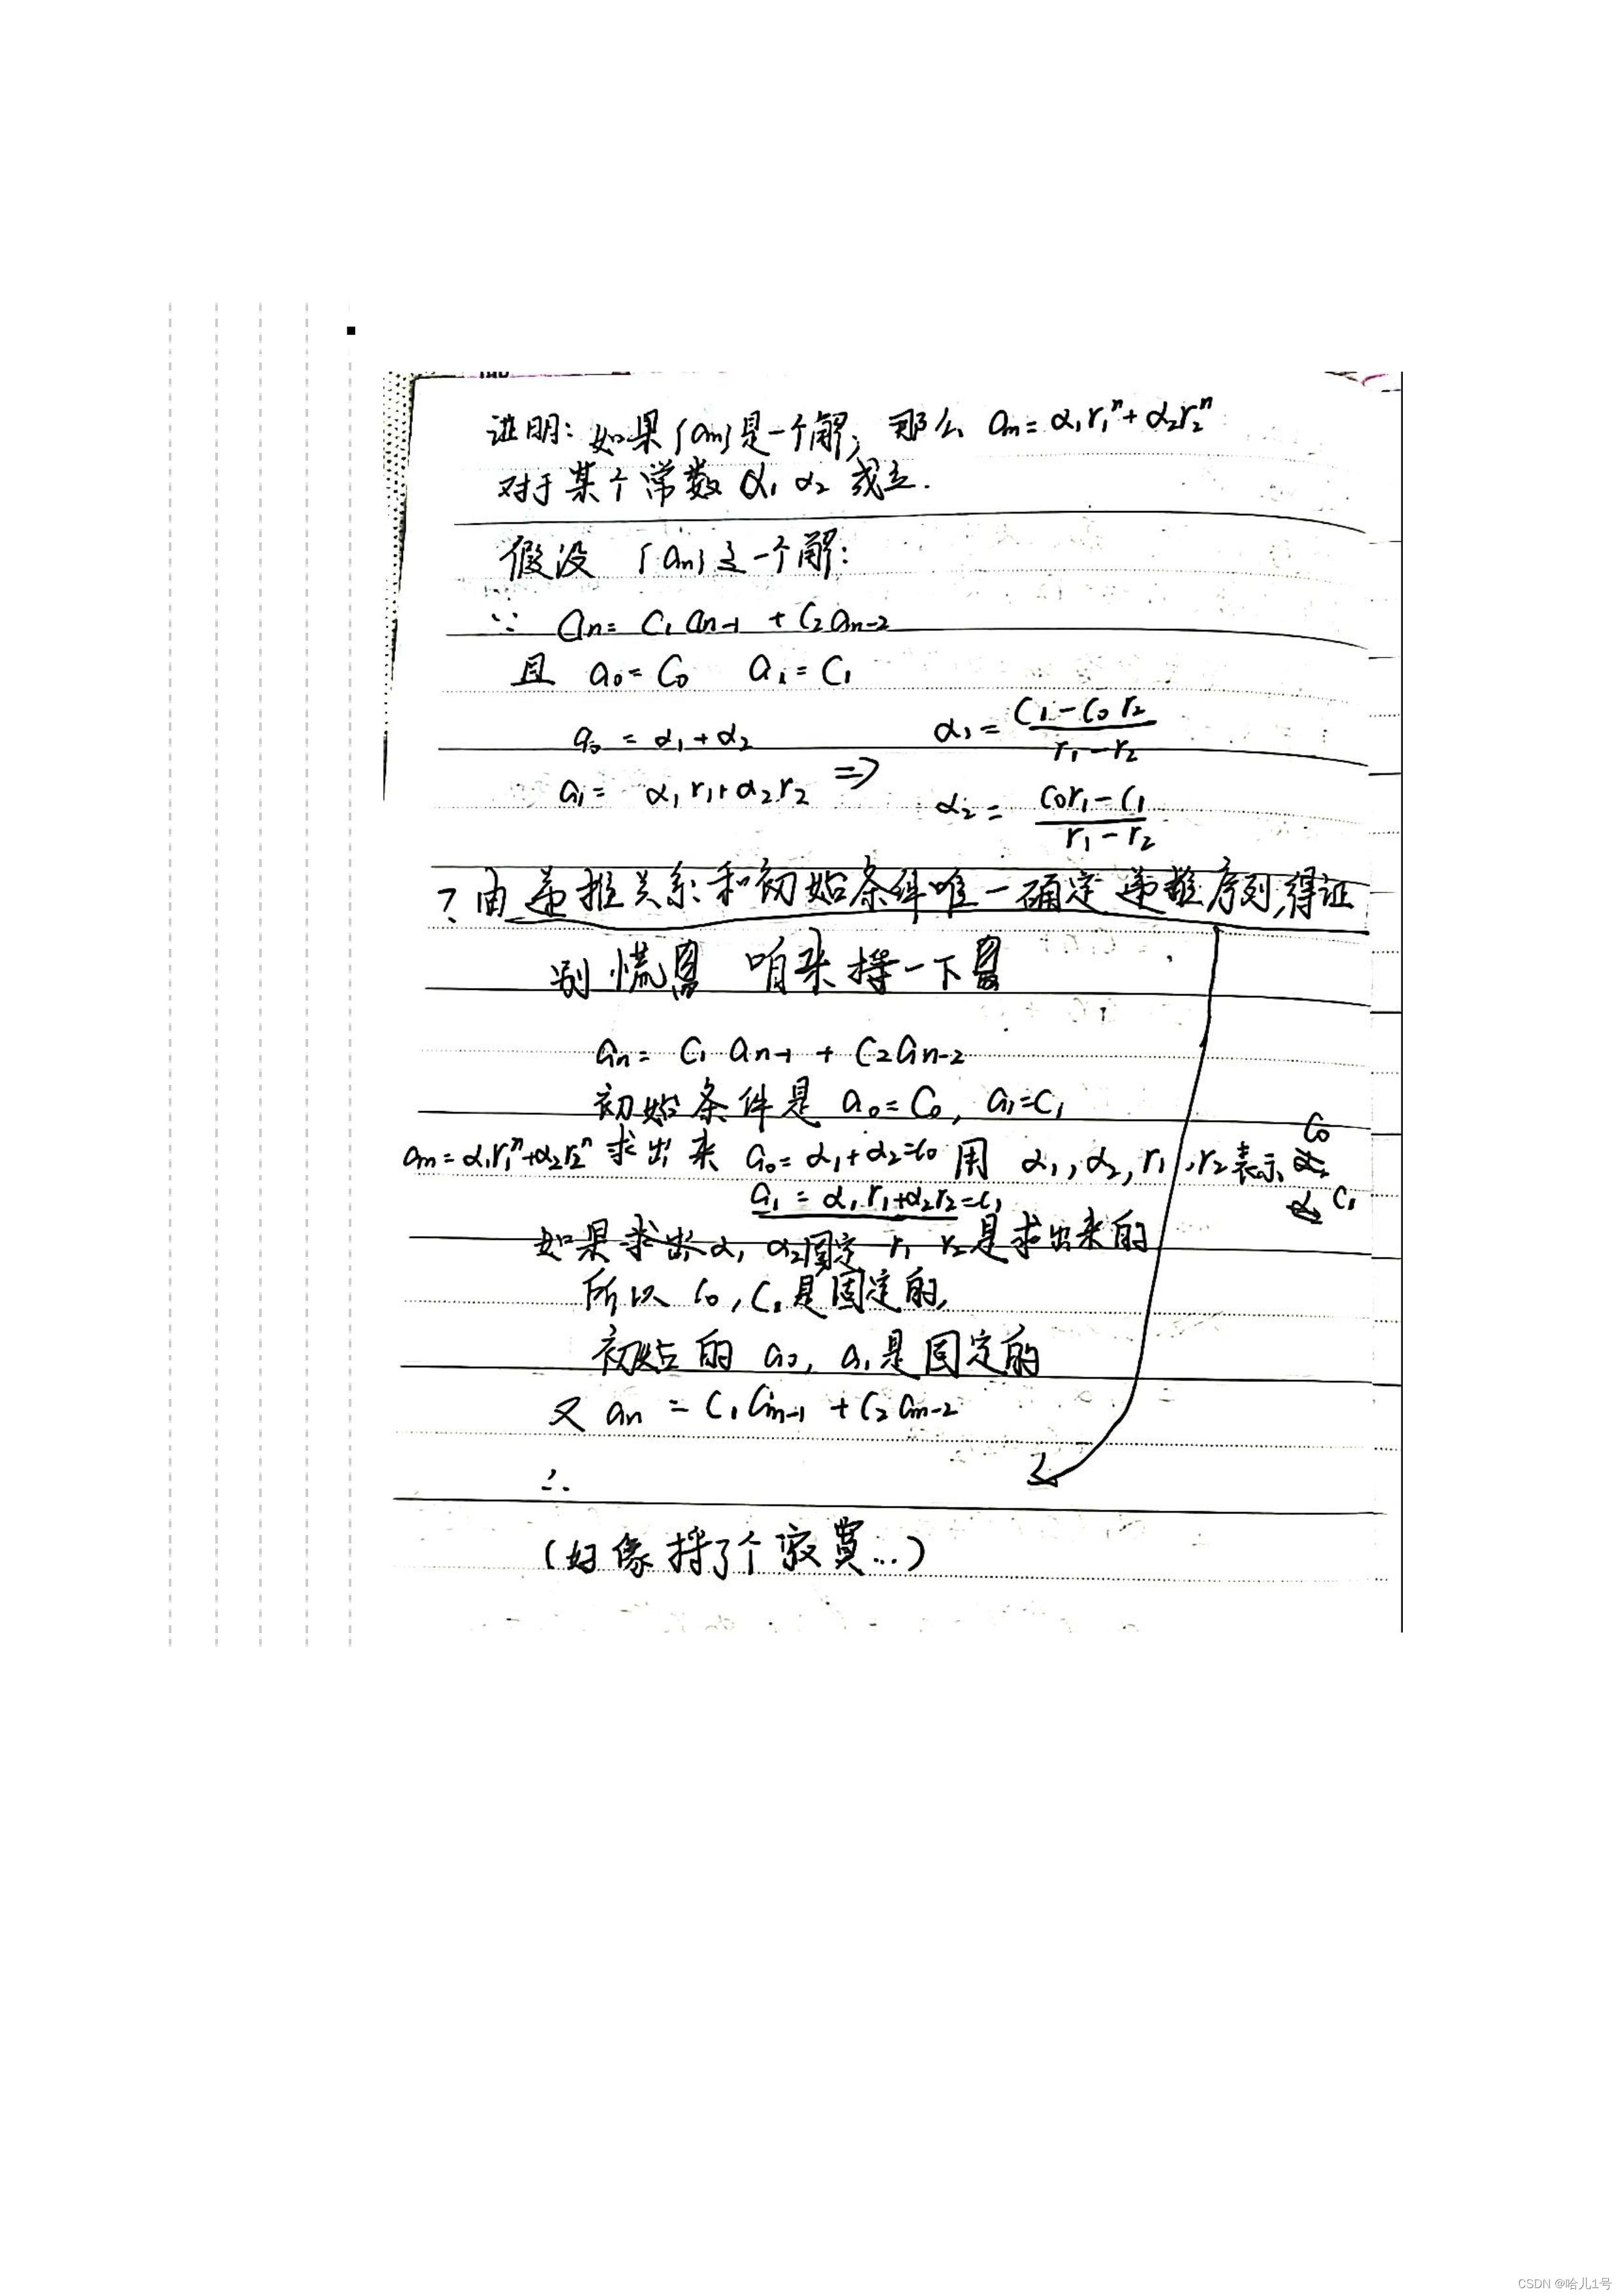 证明: 如果{an}是一个解, 那么 an = α₁r₁ⁿ + α₂r₂ⁿ
对于某个常数 α₁ α₂ 成立.
假设 {an} 是一个解:
∵ an = C₁ an-1 + C₂ an-2
且 a₀ = C₀ a₁ = C₁
a₀ = α₁ + α₂
a₁ = α₁ r₁ + α₂ r₂ ⇒
α₁ = (C₁ - C₀ r₂) / (r₁ - r₂)
α₂ = (C₀r₁ - C₁) / (r₁ - r₂)
? 由递推关系和初始条件唯一确定递推序列,得证
别慌 咱来捋一下
an = C₁ an-1 + C₂ an-2
初始条件是 a₀ = C₀, a₁ = C₁
an = α₁r₁ⁿ + α₂r₂ⁿ 求出来 a₀ = α₁ + α₂ = C₀ 用 α₁, α₂, r₁, r₂ 表示 C₀
a₁ = α₁ r₁ + α₂ r₂ = C₁ C₁
如果求出 α₁ α₂固定 r₁ r₂ 是求出来的
所以 C₀, C₁ 是固定的,
初始的 a₀, a₁ 是固定的
又 an = C₁ an-1 + C₂ an-2
∴
(好像捋了个寂寞...)
CSDN @哈儿1号